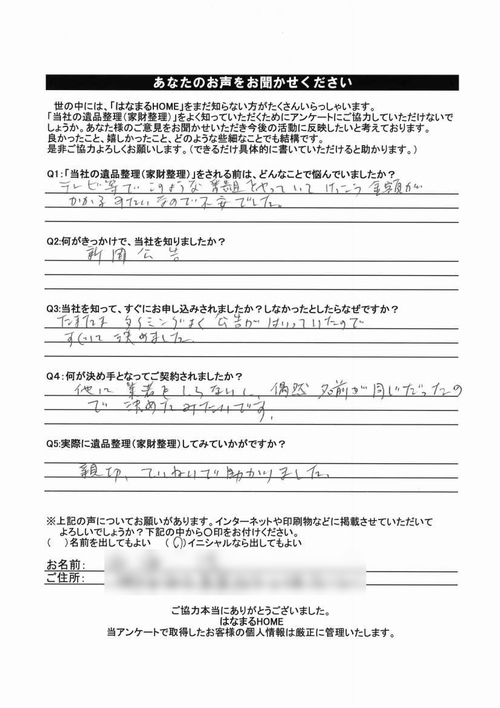 あなたのお声をお聞かせください
世の中には、「はなまるHOME」をまだ知らない方がたくさんいらっしゃいます。
「当社の遺品整理（家財整理）」をよく知っていただくためにアンケートにご協力していただけないで
しょうか。あなた様のご意見をお聞かせいただき今後の活動に反映したいと考えております。
良かったこと、嬉しかったこと、どのような些細なことでも結構です。
是非ご協力よろしくお願いします。（できるだけ具体的に書いていただけると助かります。）
Q1:「当社の遺品整理（家財整理）」をされる前は、どんなことで悩んでいましたか？
テレビ等でこのような番組をやっていて けっこう金額が
かかるみたいなので不安でした。
Q2:何がきっかけで、当社を知りましたか？
新聞公告
Q3:当社を知って、すぐにお申し込みされましたか？しなかったとしたらなぜですか？
たまたま タイミングよく 公告がはいっていたので
すぐに決めました
Q4:何が決め手となってご契約されましたか？
他に業者をしらないし、偶然名前が同じだったの
で決めたみたいです。
Q5:実際に遺品整理（家財整理）してみていかがですか？
親切、ていねいで助かりました。
※上記の声についてお願いがあります。インターネットや印刷物などに掲載させていただいて
よろしいでしょうか？下記の中から〇印をお付けください。
（　）名前を出してもよい　（〇）イニシャルなら出してもよい
お名前：
ご住所：
ご協力本当にありがとうございました。
はなまるHOME
当アンケートで取得したお客様の個人情報は厳正に管理いたします。